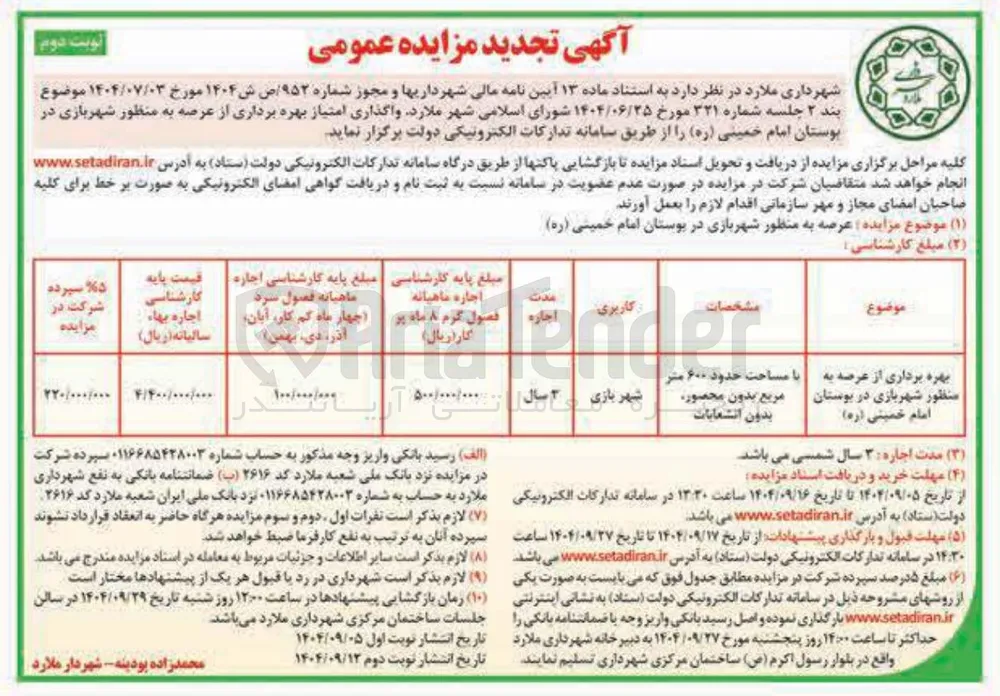 آگهی تجدید مزایده عمومی
نوبت دوم
ملارد
شهرداری ملارد در نظر دارد به استناد ماده ۱۳ آیین نامه مالی شهرداریها و مجوز شماره ۹۵۲/ص ش ۱۴۰۴ مورخ ۱۴۰۴/۰۷/۰۳ موضوع
بند ۲ جلسه شماره ۳۲۱ مورخ ۱۴۰۴/۰۶/۲۵ شورای اسلامی شهر ملارد، واگذاری امتیاز بهره برداری از عرصه به منظور شهربازی در
بوستان امام خمینی (ره) را از طریق سامانه تدارکات الکترونیکی دولت برگزار نماید.
کلیه مراحل برگزاری مزایده از دریافت و تحویل اسناد مزایده تا بازگشایی پاکتها از طریق درگاه سامانه تدارکات الکترونیکی دولت (ستاد) به آدرس www.setadiran.ir
انجام خواهد شد متقاضیان شرکت در مزایده در صورت عدم عضویت در سامانه نسبت به ثبت نام و دریافت گواهی امضای الکترونیکی به صورت بر خط برای کلیه
صاحبان امضای مجاز و مهر سازمانی اقدام لازم را بعمل آورند.
(۱) موضوع مزایده : عرصه به منظور شهربازی در بوستان امام خمینی (ره)
(۲) مبلغ کارشناسی :
موضوع
مشخصات
کاربری
مدت
اجاره
مبلغ پایه کارشناسی
اجاره ماهیانه
فصول گرم ۸ ماه پر
کار(ریال)
مبلغ پایه کارشناسی اجاره
ماهیانه فصول سرد
(چهار ماه کم کار، آبان،
آذر، دی، بهمن)
قیمت پایه
کارشناسی
اجاره بهاء
سالیانه(ریال)
۵% سپرده
شرکت در
مزایده
بهره برداری از عرصه به
منظور شهربازی در بوستان
امام خمینی (ره)
با مساحت حدود ۶۰۰ متر
مربع بدون محصور،
بدون انشعابات
شهر بازی
۳ سال
۵۰۰/۰۰۰/۰۰۰
۱۰۰/۰۰۰/۰۰۰
۴/۴۰۰/۰۰۰/۰۰۰
۲۲۰/۰۰۰/۰۰۰
AriaTender
(۳) مدت اجاره : ۳ سال شمسی می باشد.
(۴) مهلت خرید و دریافت اسناد مزایده :
از تاریخ ۱۴۰۴/۰۹/۰۵ تا تاریخ ۱۴۰۴/۰۹/۱۶ ساعت ۱۳:۳۰ در سامانه تدارکات الکترونیکی
دولت(ستاد) به آدرس www.setadiran.ir می باشد.
(۵) مهلت قبول و بارگذاری پیشنهادات: از تاریخ ۱۴۰۴/۰۹/۱۷ تا تاریخ ۱۴۰۴/۰۹/۲۷ ساعت
۱۴:۳۰ در سامانه تدارکات الکترونیکی دولت (ستاد) به آدرس www.setadiran.ir می باشد.
(۶) مبلغ ۵درصد سپرده شرکت در مزایده مطابق جدول فوق که می بایست به صورت یکی
از روشهای مشروحه ذیل در سامانه تدارکات الکترونیکی دولت (ستاد) به نشانی اینترنتی
www.setadiran.ir بارگذاری نموده و اصل رسید بانکی واریز وجه یا ضمانتنامه بانکی را
حداکثر تا ساعت ۱۴:۰۰ روز پنجشنبه مورخ ۱۴۰۴/۰۹/۲۷ به دبیرخانه شهرداری ملارد
واقع در بلوار رسول اکرم (ص) ساختمان مرکزی شهرداری تسلیم نمایند.
(الف) رسید بانکی واریز وجه مذکور به حساب شماره ۰۱۱۶۶۸۵۴۲۸۰۰۳ سپرده شرکت
در مزایده نزد بانک ملی شعبه ملارد کد ۲۶۱۶ (ب) ضمانتنامه بانکی به نفع شهرداری
ملارد به حساب به شماره ۰۱۱۶۶۸۵۴۲۸۰۰۳ نزد بانک ملی ایران شعبه ملارد کد ۲۶۱۶.
(۷) لازم بذکر است نفرات اول ، دوم و سوم مزایده هرگاه حاضر به انعقاد قرارداد نشوند
سپرده آنان به ترتیب به نفع کارفرما ضبط خواهد شد.
(۸) لازم بذکر است سایر اطلاعات و جزئیات مربوط به معامله در اسناد مزایده مندرج می باشد.
(۹) لازم بذکر است شهرداری در رد یا قبول هر یک از پیشنهادها مختار است
(۱۰) زمان بازگشایی پیشنهادها در ساعت ۱۲:۰۰ روز شنبه تاریخ ۱۴۰۴/۰۹/۲۹ در سالن
جلسات ساختمان مرکزی شهرداری ملارد می‌باشد.
تاریخ انتشار نوبت اول ۱۴۰۴/۰۹/۰۵
تاریخ انتشار نوبت دوم ۱۴۰۴/۰۹/۱۲
محمدزاده پودینه - شهردار ملارد